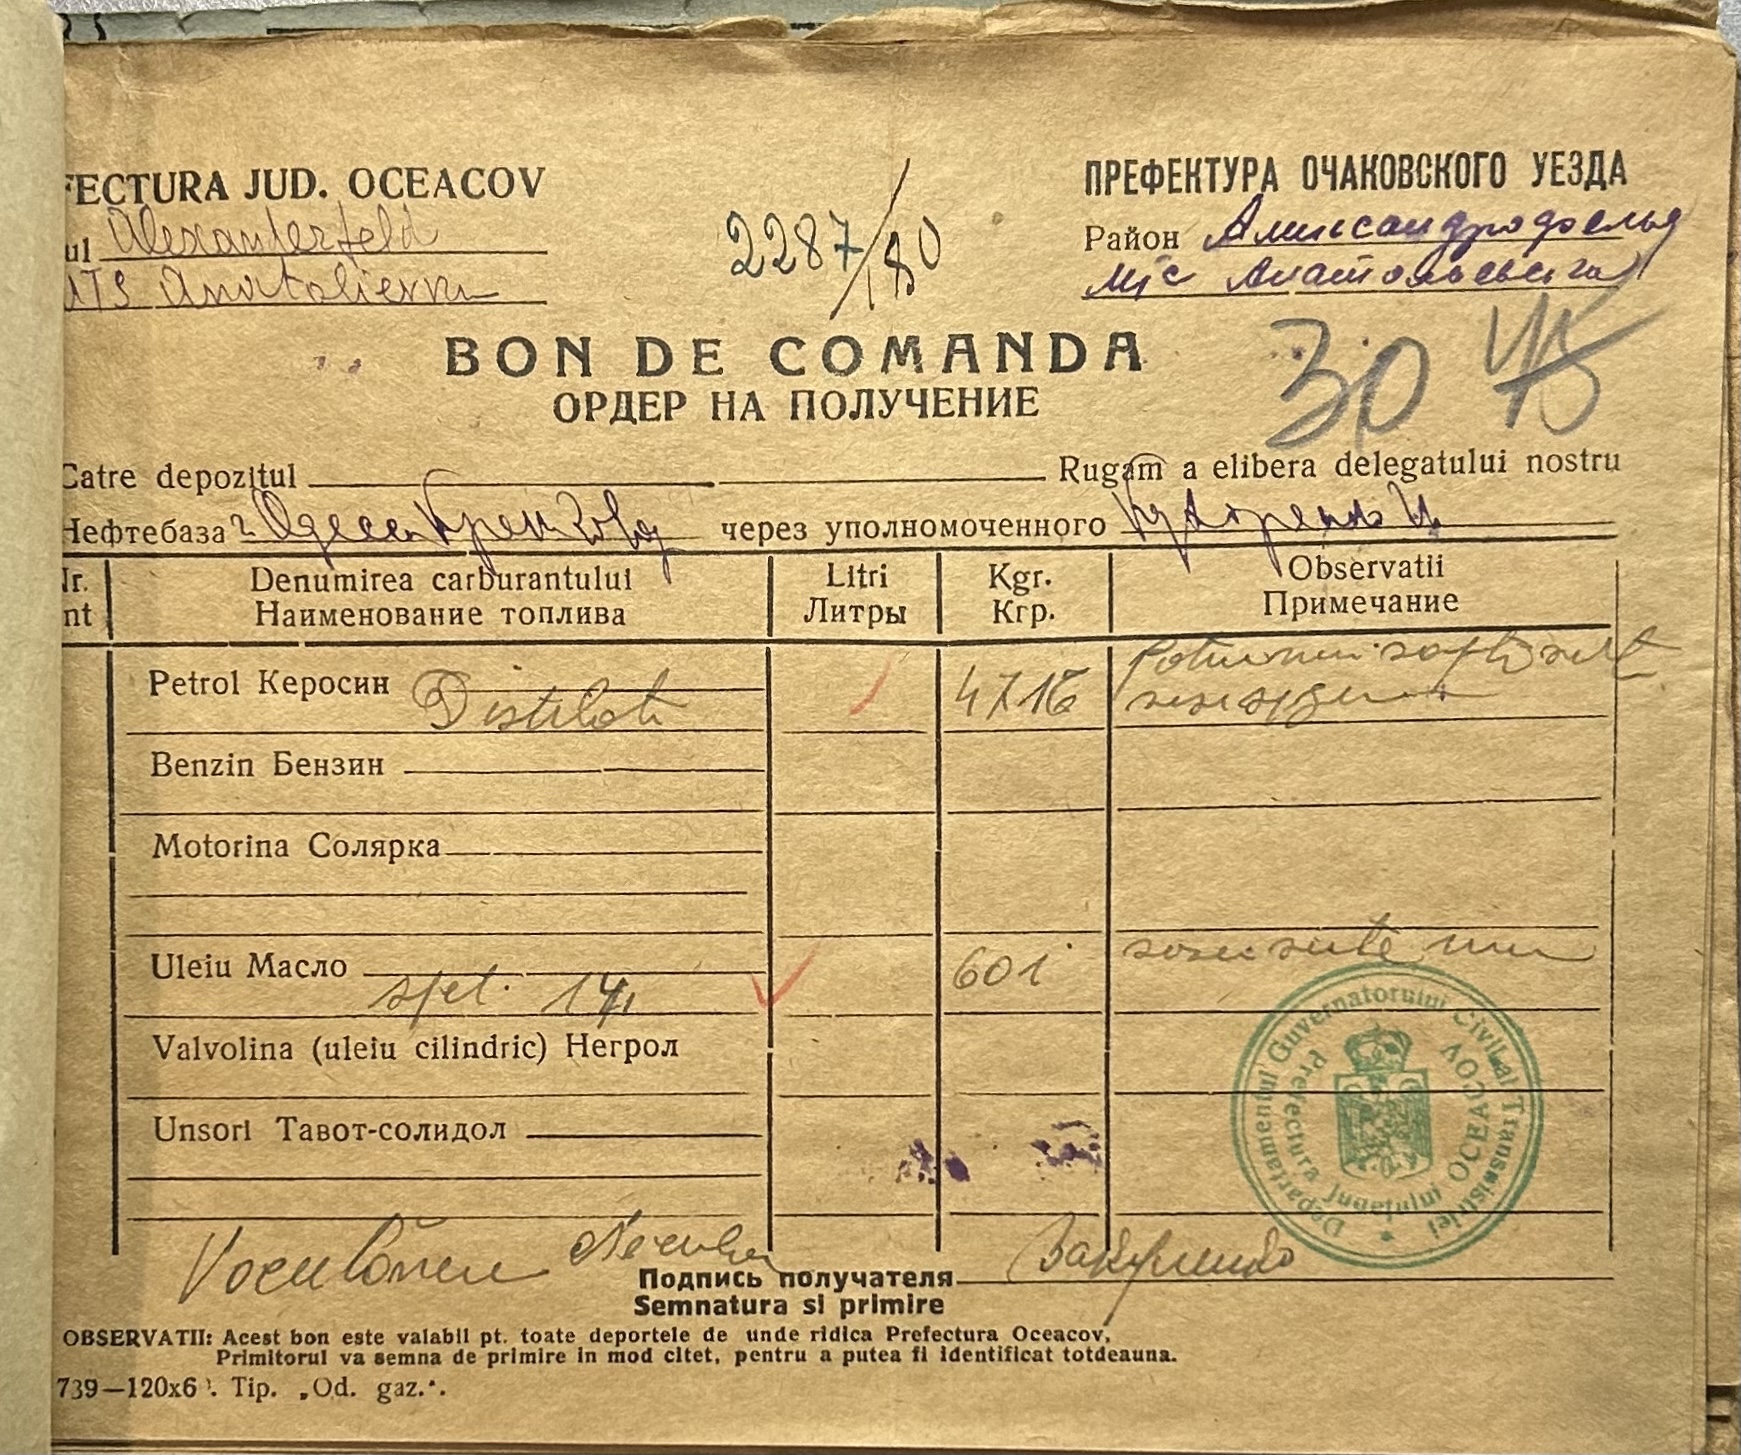 FECTURA JUD. OCEACOV
ПРЕФЕКТУРА ОЧАКОВСКОГО УЕЗДА
ul Alexanderfeld
Район
MTS
мтс
2287/180
BON DE COMANDA
ОРДЕР НА ПОЛУЧЕНИЕ
30
Catre depozitul Rugam a elibera delegatului nostru
Нефтебаза г. Одесса через уполномоченного
Nr. Denumirea carburantului Litri Kgr. Observatii
nt Наименование топлива Литры Кгр. Примечание
Petrol Керосин Distilat 4716
Benzin Бензин
Motorina Солярка
Uleiu Масло 601 sase sute unu
Valvolina (uleiu cilindric) Негрол
Unsori Тавот-солидол
Departamentul Guvernatorului Civil al Transnistriei
Prefectura Judeţului OCEACOV
Подпись получателя
Semnatura si primire
OBSERVATII: Acest bon este valabil pt. toate deportele de unde ridica Prefectura Oceacov,
Primitorul va semna de primire in mod citet, pentru a putea fi identificat totdeauna.
739—120x6 . Tip. „Od. gaz.“.